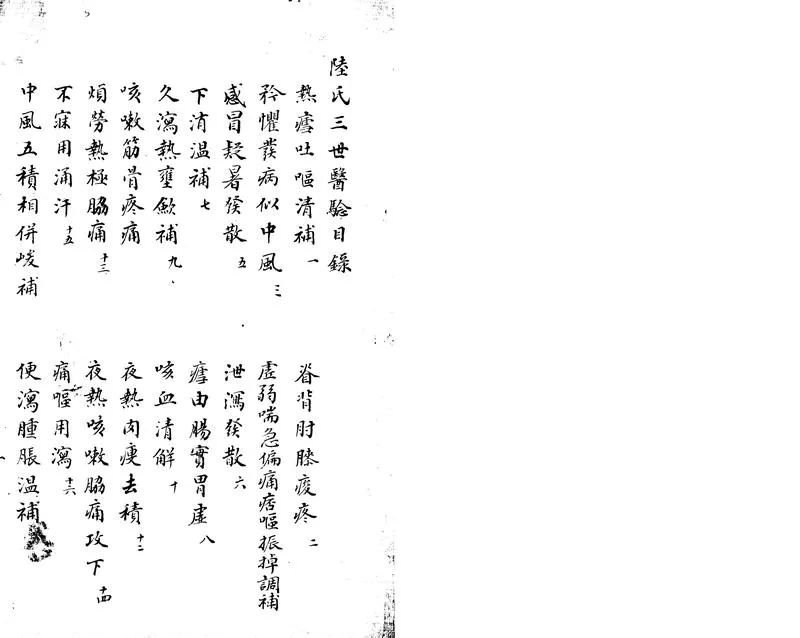 陸氏三世醫驗目錄
熱瘧吐嘔清補 一
脊背肘膝痠疼 二
矜懼發病似中風 三
虛弱喘急偏痛痞嘔振掉調補
感冒疑暑發散 五
泄瀉發散 六
下消溫補 七
瘧由腸實胃虛 八
久瀉熱壅斂補 九
咳血清解 十
咳嗽筋骨疼痛
夜熱肉痩去積 十二
煩勞熱極脇痛 十三
夜熱咳嗽脇痛攻下 十四
不寐用涌汗 十五
痛嘔用瀉 十六
中風五積相併峻補
便瀉腫脹溫補